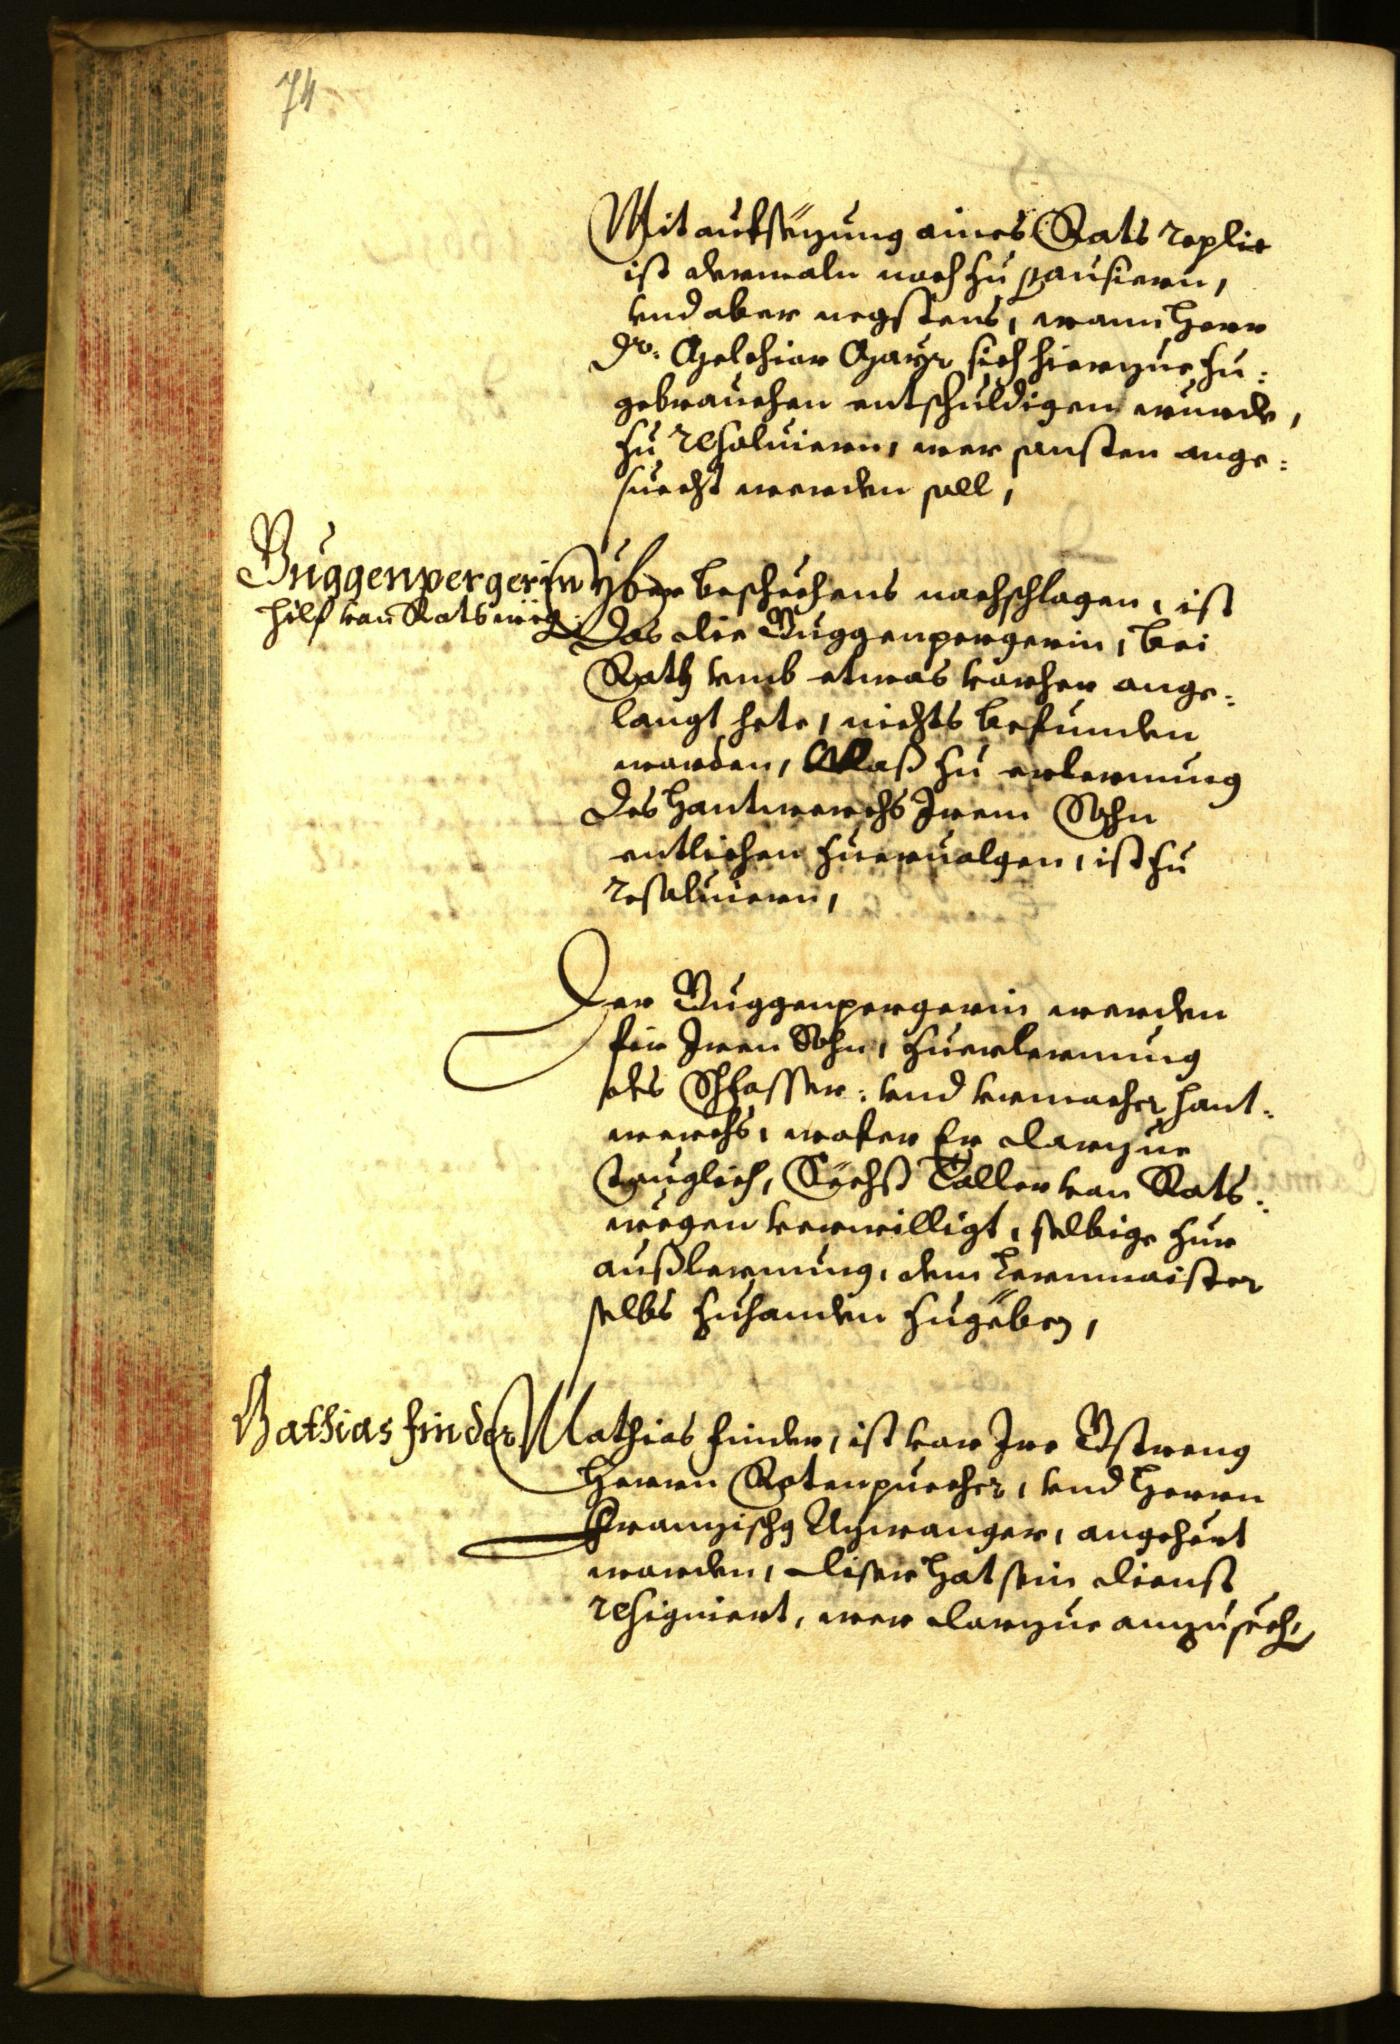 74
Mit aufsezung aines Rats replic
ist dermaln noch zu pausiern,
vnd aber negstens, wann Herr
Dr. Melchior Mayr sich hierzue zu:
gebrauchen entschuldigen wurde,
zu resoluiern, wer sonsten ange:
suecht werden soll,
Guggenpergerin
hilf von Rats weg:
Yber beschechens nachschlagen, ist
das die Guggenpergerin, bei
Rath vmb etwas vorher ange:
langt hete, nichts befunden
worden, Waß zu erlernung
des Hantwerchs Irem Sohn
entlichen zueruolgen, ist zu
resoluiern,
Der Guggenpergerin werden
für Iren Sohn, zuerlernung
des Schlosser: vnd vrmacher hant:
werchs, wofer Er darzue
tauglich, Sechß Taller von Rats:
wegen verwilligt, selbige zur
außlernung, dem Lernmaister
selbs zuhanden zugeben,
Mathias finder
Mathias finder, ist vor Ire Gstreng
Herrn Rotenpuecher, vnd Herrn
Franzischg Uzwanger, angehört
worden, diser hat sein dienst
resigniert, wer darzue anzusuech,